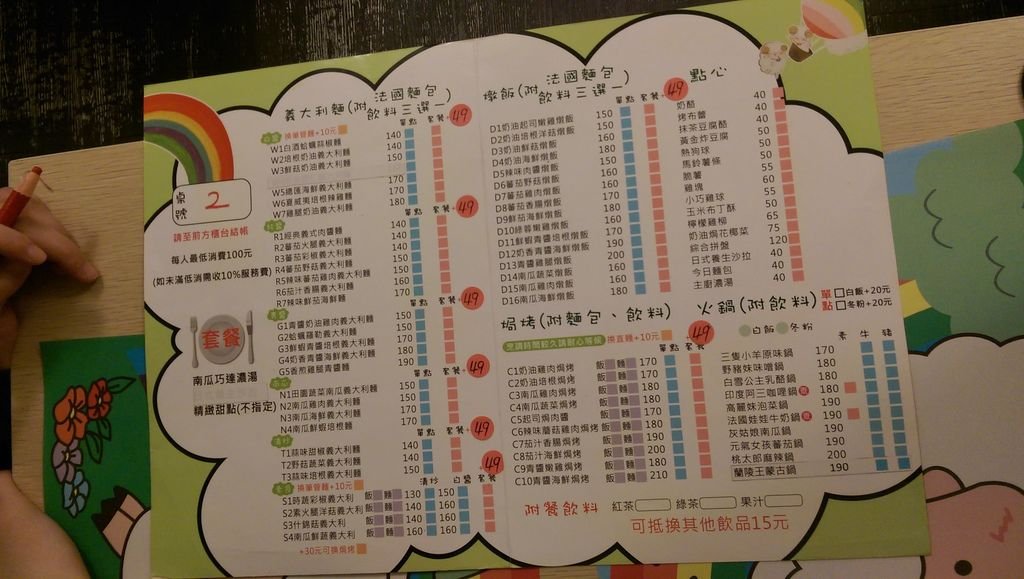 桌號 2
請至前方櫃台結帳
每人最低消費100元
(如未滿低消需收10%服務費)
套餐
南瓜巧達濃湯
精緻甜點(不指定)
義大利麵(附法國麵包 飲料三選一)
換筆管麵+10元
單點 套餐+49
W1白酒蛤蠣蒜椒麵 140
W2培根奶油義大利麵 140
W3鮮菇奶油義大利麵 150
W5總匯海鮮義大利麵 170
W6夏威夷培根辣雞麵 170
W7雞腿奶油義大利麵 180
單點 套餐+49
R1經典義式肉醬麵 140
R2蕃茄火腿義大利麵 140
R3蕃茄彩椒義大利麵 140
R4蕃茄野菇義大利麵 150
R5辣味蕃茄雞肉義大利麵 150
R6茄汁香腸義大利麵 160
R7辣味鮮茄海鮮麵 170
單點 套餐+49
G1青醬奶油雞肉義大利麵 150
G2蛤蠣蘿勒義大利麵 150
G3鮮蝦青醬培根義大利麵 170
G4奶香青醬海鮮義大利麵 180
G5香煎雞腿青醬麵 190
單點 套餐+49
N1田園蔬菜南瓜義大利麵 150
N2南瓜雞肉義大利麵 150
N3南瓜海鮮義大利麵 170
N4南瓜鮮蝦培根麵 170
單點 套餐+49
T1蒜味甜椒義大利麵 140
T2野菇蔬菜義大利麵 140
T3蒜味培根義大利麵 150
換筆管麵+10元
清炒 白醬 套餐+49
S1時蔬彩椒義大利 飯 麵 130 150
S2素火腿洋菇義大利 飯 麵 140 160
S3什錦菇義大利 飯 麵 140 160
S4南瓜鮮蔬義大利 飯 麵 160 160
+30元可換焗烤
燉飯(附法國麵包 飲料三選一)
單點 套餐+49
D1奶油起司嫩雞燉飯 150
D2奶油培根洋菇燉飯 150
D3奶油鮮菇燉飯 160
D4奶油海鮮燉飯 180
D5辣味肉醬燉飯 150
D6蕃茄野菇燉飯 160
D7蕃茄雞肉燉飯 170
D8蕃茄香腸燉飯 170
D9鮮茄海鮮燉飯 180
D10綠蓉嫩雞燉飯 160
D11鮮蝦青醬培根燉飯 190
D12奶香青醬海鮮燉飯 190
D13青醬雞腿燉飯 200
D14南瓜蔬菜燉飯 160
D15南瓜雞肉燉飯 160
D16南瓜海鮮燉飯 180
點心
奶酪 40
烤布蕾 40
抹茶豆腐酪 40
黃金炸豆腐 50
熱狗球 50
馬鈴薯條 50
脆薯 50
雞塊 60
小巧雞球 50
玉米布丁酥 50
檸檬雞柳 65
奶油焗花椰菜 75
綜合拼盤 120
日式養生沙拉 40
今日麵包 40
主廚濃湯 40
焗烤(附麵包、飲料)
烹調時間較久請耐心等候 換直麵+10元
單點 套餐+49
C1奶油雞肉焗烤 飯 麵 170
C2奶油培根焗烤 飯 麵 170
C3奶油海鮮焗烤 飯 麵 180
C4南瓜蔬菜焗烤 飯 麵 180
C5起司焗肉醬 飯 麵 170
C6辣味蘑菇雞肉焗烤 飯 麵 190
C7茄汁香腸焗烤 飯 麵 190
C8茄汁海鮮焗烤 飯 麵 200
C9青醬嫩雞焗烤 飯 麵 180
C10青醬海鮮焗烤 飯 麵 210
火鍋(附飲料) 單點 白飯+20元 冬粉+20元
白飯 冬粉
素 牛 豬
三隻小羊原味鍋 170
野豬妹味噌鍋 180
白雪公主乳酪鍋 180
印度阿三咖哩鍋 180
高麗妹泡菜鍋 190
法國娃娃牛奶鍋 190
灰姑娘南瓜鍋 190
元氣女孩蕃茄鍋 190
桃太郎麻辣鍋 200
蘭陵王蒙古鍋 190
附餐飲料 紅茶 綠茶 果汁
可抵換其他飲品15元